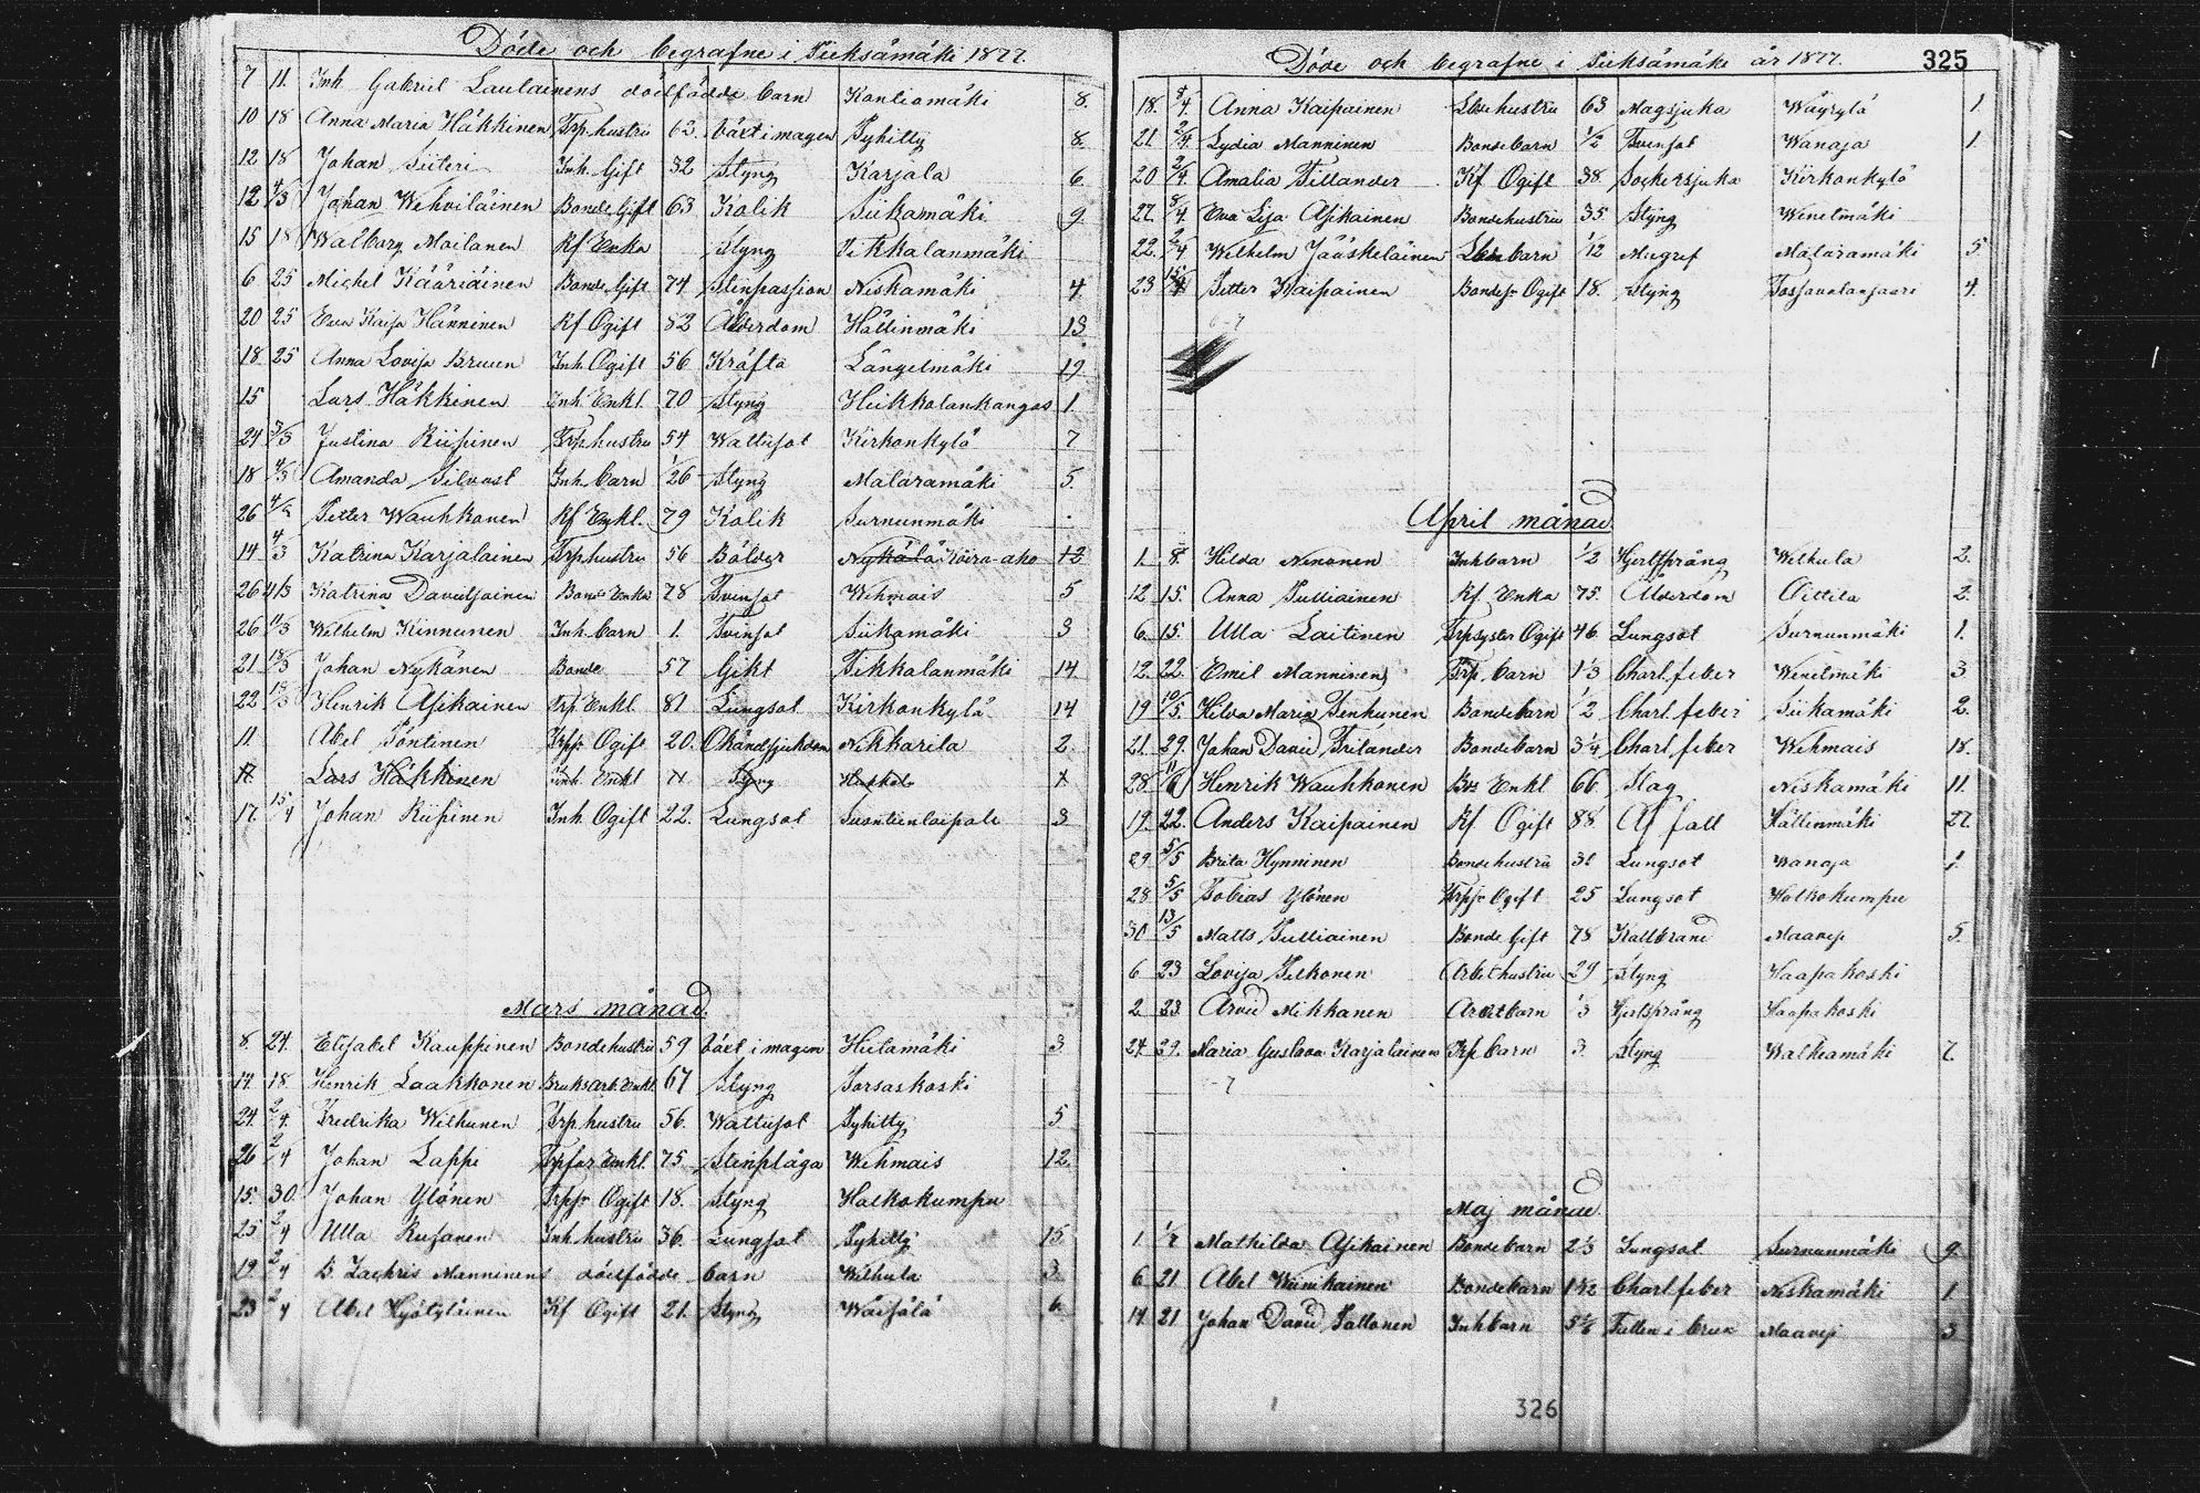 Döde och begrafne i Pieksämäki 1877.
7 11. Inh Gabriel Laulainens dödfödde barn Kontiomäki 8.
10 18 Anna Maria Häkkinen Trp. hustru 62. Växt i magen Pyhitty 8.
12 18 Johan Siiteri Inh. Gift 32 Styng Karjala 6.
12 4/3 Johan Wehviläinen Bonde Gift 63 Kolik Siikamäki 9.
15 18 Walborg Moilanen Kf Enka Styng Tikkalanmäki
6 25 Michel Kääriäinen Bonde Gift 74 Stenpassion Niskamäki 4.
20 25 Eva Kaisa Hänninen Kf Ogift 82 Ålderdom Hällinmäki 13
18. 25 Anna Lovisa Bruun Inh. Ogift 56 Kräfta Längelmäki 19
15 Lars Häkkinen Inh. Enkl. 70 Styng Heikkolankangas 1.
24 3/3 Justina Riipinen Trp. hustru 54 Wattusot Kirkonkylä 7
18 4/3 Amanda Silvast Inh. barn 1/26 Styng Mataramäki 5.
26 Petter Wauhkonen Kf Enkl. 79 Kolik Surnunmäki
14 4/3 Katrina Karjalainen Trp. hustru 56 Bölder Nykälä Koira-aho 12
26 4/3 Katrina Davidsainen Bonde Enka 78 Tvinsot Wehmais 5
26 11/3 Wilhelm Kinnunen Inh. barn 1. Tvinsot Siikamäki 3
21 18/3 Johan Nykänen Bonde 57 Gikt Tikkalanmäki 14
22 18/3 Henrik Asikainen Trp. Enkl. 81 Lungsot Kirkonkylä 14
11. Abel Pöntinen Trpsr Ogift 20. Okändsjukdom Nikkarila 2.
17. Lars Häkkinen Inh. Enkl Styng
17. 15/4 Johan Riipinen Inh. Ogift 22. Lungsot Suontienlaipale 3
Mars månad.
8. 24. Elisabet Kauppinen Bondehustru 59 Växt i magen Heilamäki 3
14. 18. Henrik Laakkonen Bruksarb. Enkl. 67 Styng Porsaskoski
24. 2/4. Fredrika Wilhunen Trp. hustru 56. Wattusot Pyhitty 5
26 2/4 Johan Lappi Trpfar Enkl. 75 Stenplåga Wehmais 12.
15. 30. Johan Ylönen Trpsr Ogift 18. Styng Halkokumpu
25 2/4 Ulla Rusanen Inh. hustru 36. Lungsot Pyhitty 15
19. 2/4 B. Zachris Manninens dödfödde barn Wilhula 3.
23 2/4 Abel Hyötyläinen Kf Ogift 21. Styng 6.
Döde och begrafne i Pieksämäki år 1877. 325
18. 8/4. Anna Kaipainen hustru 63 Magsjuka Wäyrylä 1.
21 2/4. Lydia Manninen Bondebarn 1/2 Tvinsot Wanaja 1.
20 2/4. Amalia Tillander Kf Ogift 38. Sockersjuka Kirkonkylä
27. 8/4. Eva Lisa Asikainen Bondehustru 35 Styng Wenetmäki
22. 2/4 Wilhelm Jääskeläinen barn 1/12 Mataramäki 5
23 15/4 Petter Kaipainen Bondesr Ogift 18. Styng 4.
April månad.
1. 8. Hilda Nenonen Inhbarn 1/2 Hjertsprång Wilhula 2.
12 15. Anna Pulliainen Kf. Enka 75. Ålderdom Oittila 2.
6. 15. Ulla Laitinen Trpsyster Ogift 46. Lungsot Surnunmäki 1.
12. 22. Emil Manninen Trp. barn 1 1/3 Charl. feber Wenetmäki 3
19 10/5. Hilda Maria Tenhunen Bondebarn 1/2 Charl. feber Siikamäki 2.
21. 29. Johan David Frilander Bondebarn 3 1/4 Charl. feber Wehmais 18.
28 11/6 Henrik Wauhkonen Enkl 66. Slag Niskamäki 11.
19. 22. Anders Kaipainen Kf. Ogift 88 Af fall Hällinmäki 27.
29 5/5 Brita Hynninen Bondehustru 31 Lungsot Wanaja 1.
28 5/5 Tobias Ylönen Trpsr Ogift 25 Lungsot Halkokumpu
30 13/5 Matts Pulliainen Bonde Gift 78 Kallbrand Maavesi 5.
6 23 Lovisa Pelkonen Arbethustru 29 Styng Haapakoski
2. 23. Arvid Mikkanen Arbetbarn 1/3 Hjertsprång Haapakoski
24 29. Maria Gustava Karjalainen Trp. barn 3. Styng Walkiamäki 7.
Maj månad.
1. Mathilda Asikainen Bondebarn 2 1/3 Lungsot Surnunmäki 9.
6 21 Abel Wainikainen Bondebarn 1 1/12 Charl feber Niskamäki 1.
14. 21 Johan David Paltonen Inhbarn Fallen i brun Maavesi 3
326